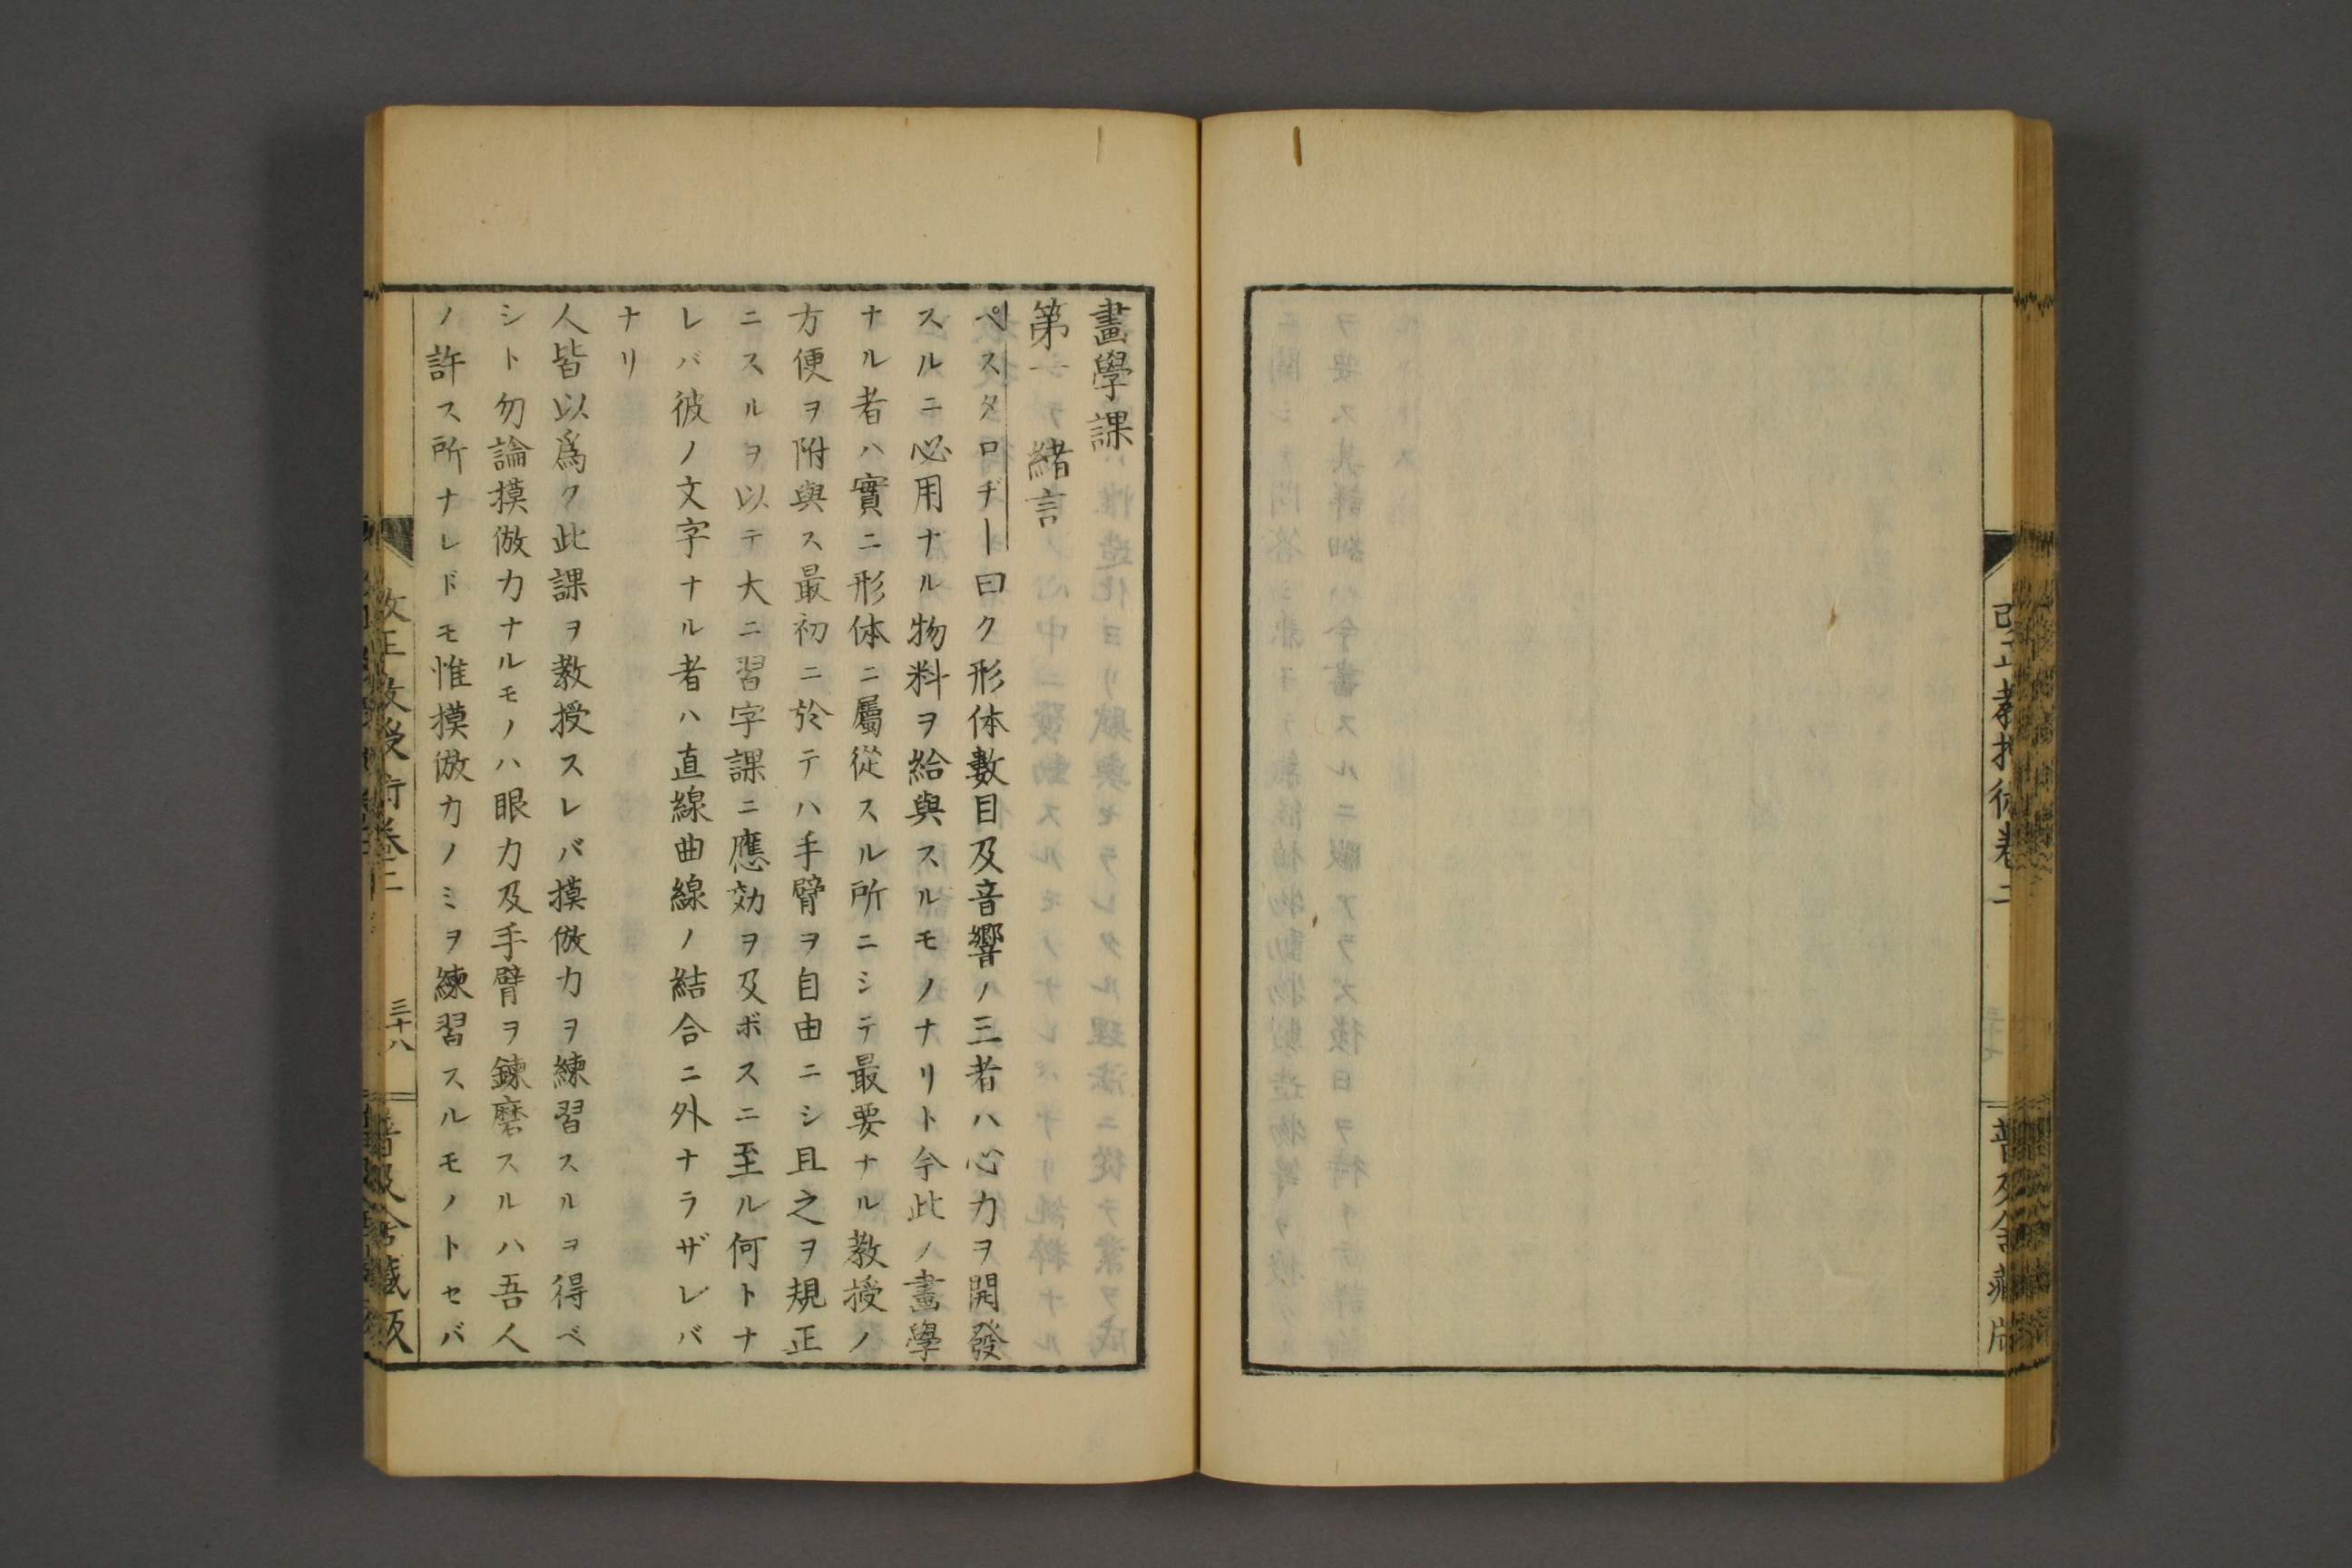 改正教授術卷二
普及舍藏版
畫學課
第一 緒言
ペスタロヂー曰ク形体數目及音響ノ三者ハ心力ヲ開發
スルニ必用ナル物料ヲ給與スルモノナリト今此ノ畫學
ナル者ハ實ニ形体ニ屬從スル所ニシテ最要ナル教授ノ
方便ヲ附與ス最初ニ於テハ手臂ヲ自由ニシ且之ヲ規正
ニスルヲ以テ大ニ習字課ニ應効ヲ及ボスニ至ル何トナ
レバ彼ノ文字ナル者ハ直線曲線ノ結合ニ外ナラザレバ
ナリ
人皆以爲ク此課ヲ教授スレバ摸倣力ヲ練習スルヲ得ベ
シト勿論摸倣力ナルモノハ眼力及手臂ヲ鍊磨スルハ吾人
ノ許ス所ナレドモ惟摸倣力ノミヲ練習スルモノトセバ
改正教授術卷二
三十八
普及舍藏版